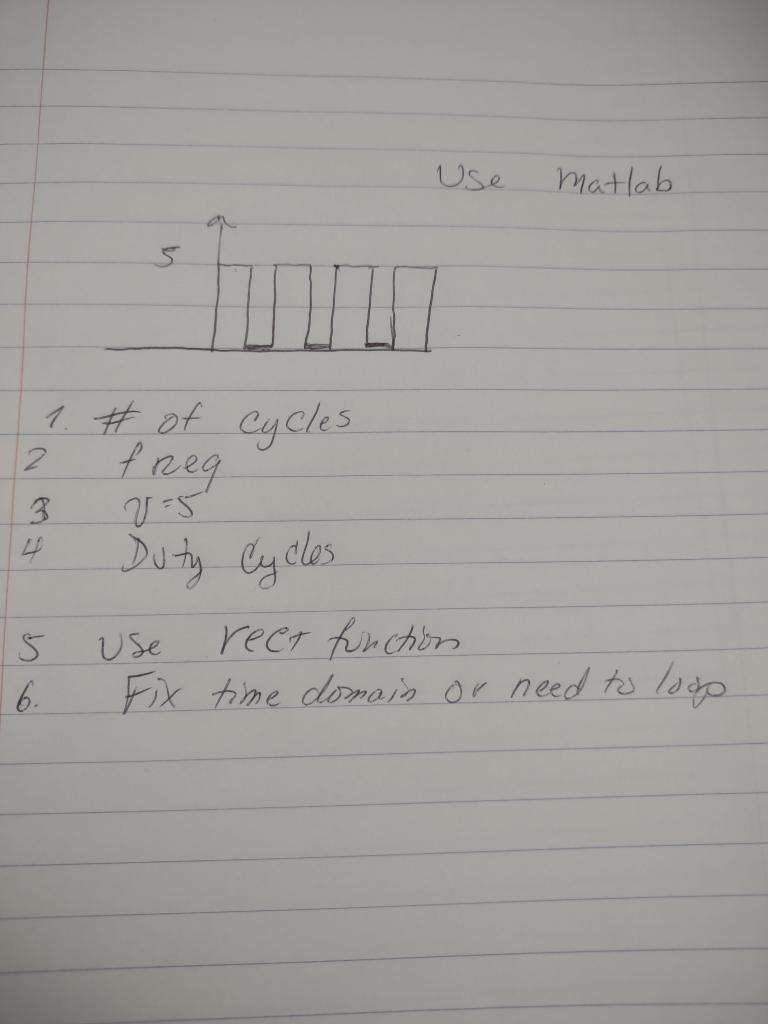 Use Matlab
5
1. # of cycles
2 freq
3 V=5
4 Duty Cycles
5 Use rect function
6. Fix time domain or need to loop